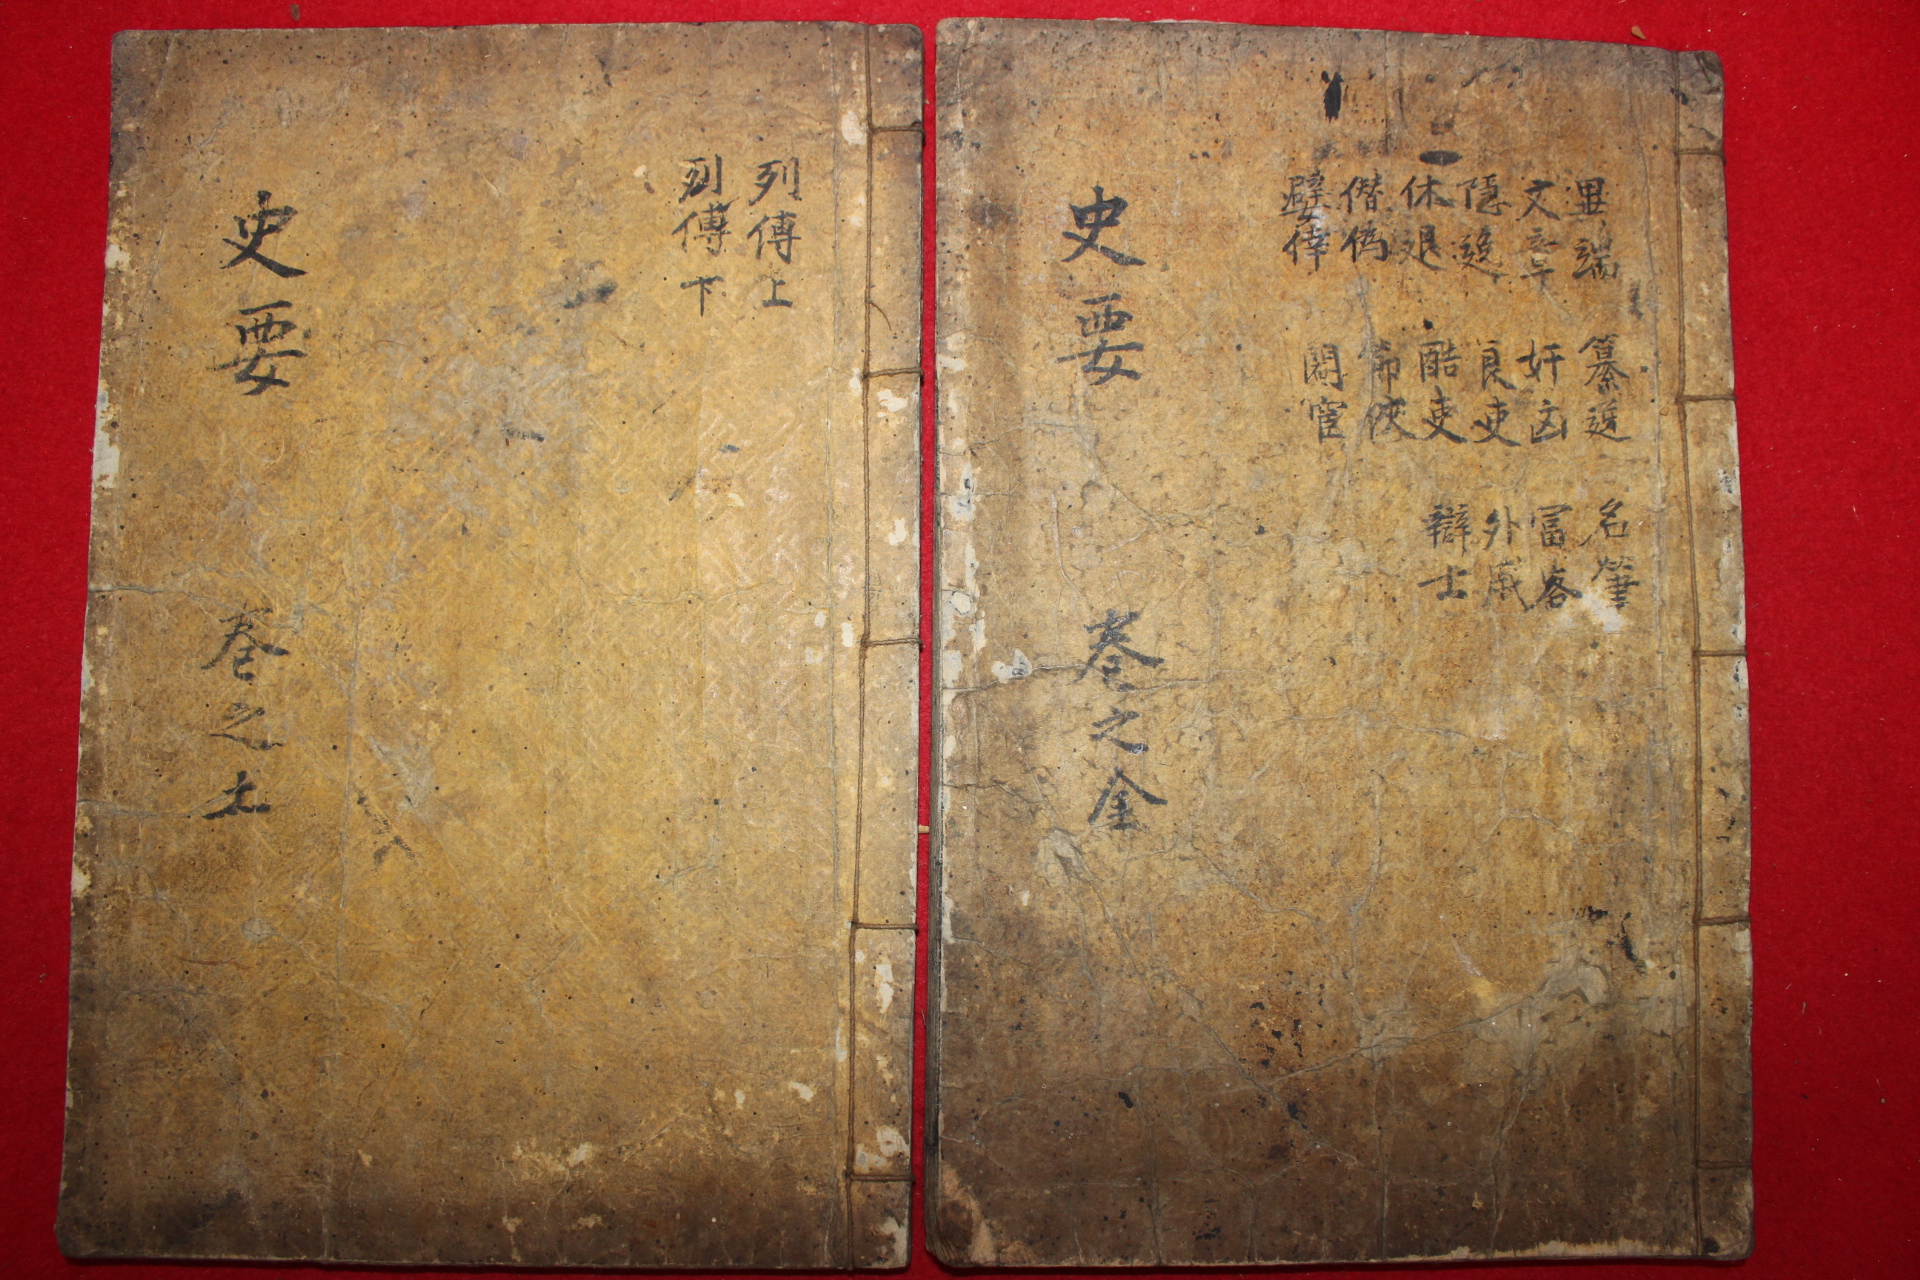 列傳上
列傳下
史要
卷之土
異端
文章
隱逸
休退
僭偽
嬖倖
簒逆
奸凶
良吏
酷吏
節俠
閹宦
名筆
外戚
辯士
史要
卷之金